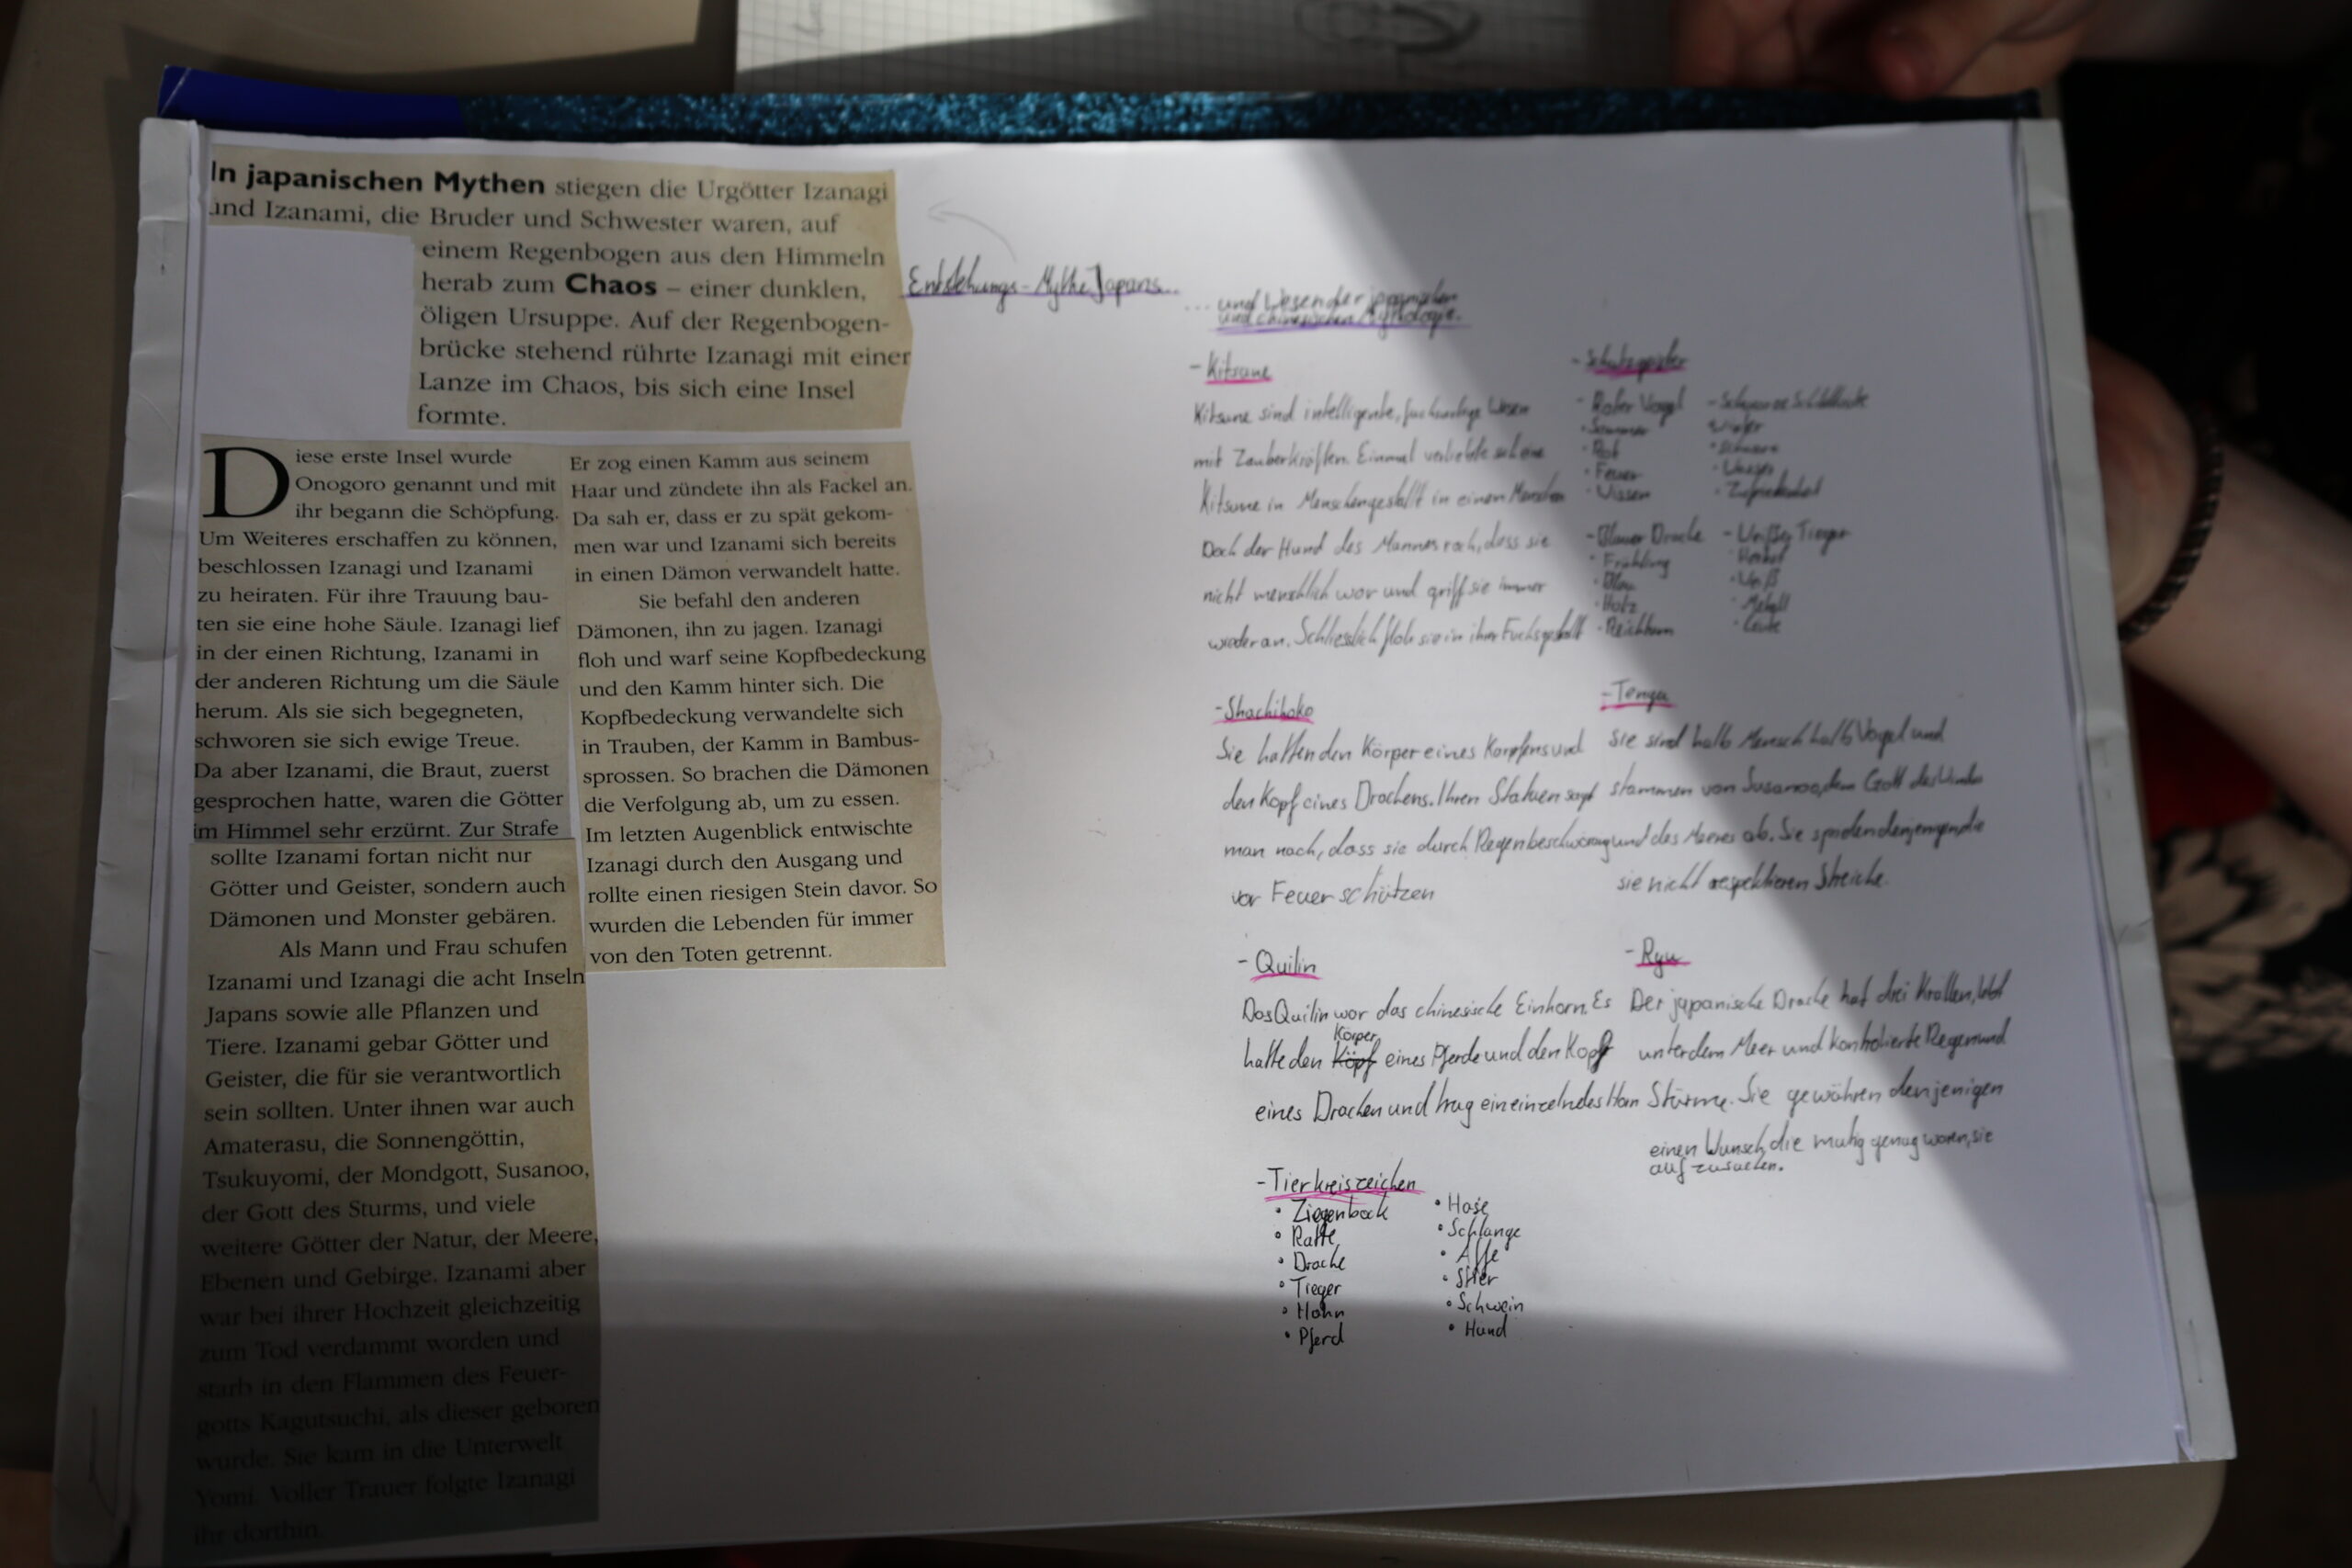 In japanischen Mythen stiegen die Urgötter Izanagi
und Izanami, die Bruder und Schwester waren, auf
einem Regenbogen aus den Himmeln
herab zum Chaos – einer dunklen,
öligen Ursuppe. Auf der Regenbogen-
brücke stehend rührte Izanagi mit einer
Lanze im Chaos, bis sich eine Insel
formte.
Diese erste Insel wurde
Onogoro genannt und mit
ihr begann die Schöpfung.
Um Weiteres erschaffen zu können,
beschlossen Izanagi und Izanami
zu heiraten. Für ihre Trauung bau-
ten sie eine hohe Säule. Izanagi lief
in der einen Richtung, Izanami in
der anderen Richtung um die Säule
herum. Als sie sich begegneten,
schworen sie sich ewige Treue.
Da aber Izanami, die Braut, zuerst
gesprochen hatte, waren die Götter
im Himmel sehr erzürnt. Zur Strafe
sollte Izanami fortan nicht nur
Götter und Geister, sondern auch
Dämonen und Monster gebären.
Als Mann und Frau schufen
Izanami und Izanagi die acht Inseln
Japans sowie alle Pflanzen und
Tiere. Izanami gebar Götter und
Geister, die für sie verantwortlich
sein sollten. Unter ihnen war auch
Amaterasu, die Sonnengöttin,
Tsukuyomi, der Mondgott, Susanoo,
der Gott des Sturms, und viele
weitere Götter der Natur, der Meere,
Ebenen und Gebirge. Izanami aber
war bei ihrer Hochzeit gleichzeitig
zum Tod verdammt worden und
starb in den Flammen des Feuer-
gotts Kagutsuchi, als dieser geboren
wurde. Sie kam in die Unterwelt
Yomi. Voller Trauer folgte Izanagi
ihr dorthin.
Er zog einen Kamm aus seinem
Haar und zündete ihn als Fackel an.
Da sah er, dass er zu spät gekom-
men war und Izanami sich bereits
in einen Dämon verwandelt hatte.
Sie befahl den anderen
Dämonen, ihn zu jagen. Izanagi
floh und warf seine Kopfbedeckung
und den Kamm hinter sich. Die
Kopfbedeckung verwandelte sich
in Trauben, der Kamm in Bambus-
sprossen. So brachen die Dämonen
die Verfolgung ab, um zu essen.
Im letzten Augenblick entwischte
Izanagi durch den Ausgang und
rollte einen riesigen Stein davor. So
wurden die Lebenden für immer
von den Toten getrennt.
Entstehungs-Mythe Japans...
...und Wesen der japanischen
und chinesischen Mythologie.
- Kitsune
Kitsune sind intelligente, fuchsartige Wesen
mit Zauberkräften. Einmal verliebte sich eine
Kitsune in Menschengestallt in einen Menschen
Doch der Hund des Mannes roch, dass sie
nicht menschlich war und griff sie immer
wieder an. Schliesslich floh sie in ihrer Fuchsgestallt
- Schutzgeister
- Roter Vogel
• Sommer
• Rot
• Feuer
• Wissen
- Schwarze Schildkröte
Winter
• Schwarz
• Wasser
• Zufriedenheit
- Blauer Drache
• Frühling
• Blau
• Holz
• Reichtum
- Weißer Tieger
Herbst
• Weiß
• Metall
- Shachihoko
Sie hatten den Körper eines Karpfens und
den Kopf eines Drachens. Ihren Statuen sagt
man nach, dass sie durch Regenbeschwörung
vor Feuer schützen
- Tengu
Sie sind halb Mensch halb Vogel und
stammen von Susanoo, dem Gott des Windes
und des Meeres ab. Sie spielen denjenigen die
sie nicht respektieren Streiche.
- Quilin
Das Quilin war das chinesische Einhorn. Es
Körper
hatte den Köpf eines Pferde und den Kopf
eines Drachen und trug ein einzelndes Horn
- Ryu
Der japanische Drache hat drei Krallen, lebt
unter dem Meer und kontrolierte Regen und
Stürme. Sie gewähren denjenigen
einen Wunsch, die mutig genug waren, sie
aufzusuchen.
- Tierkreiszeichen
• Ziegenbock
• Ratte
• Drache
• Tieger
• Hahn
• Pferd
• Hase
• Schlange
• Affe
• Stier
• Schwein
• Hund